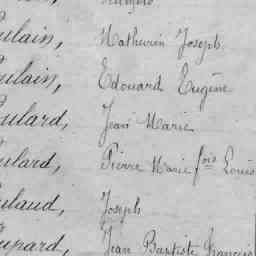 ulain, Mathurin Joseph
ulain, Edouard Eugène
oulard, Jean Marie
oulard, Pierre Marie fois Louis
ulaud, Joseph
upard, Jean Baptiste Francis